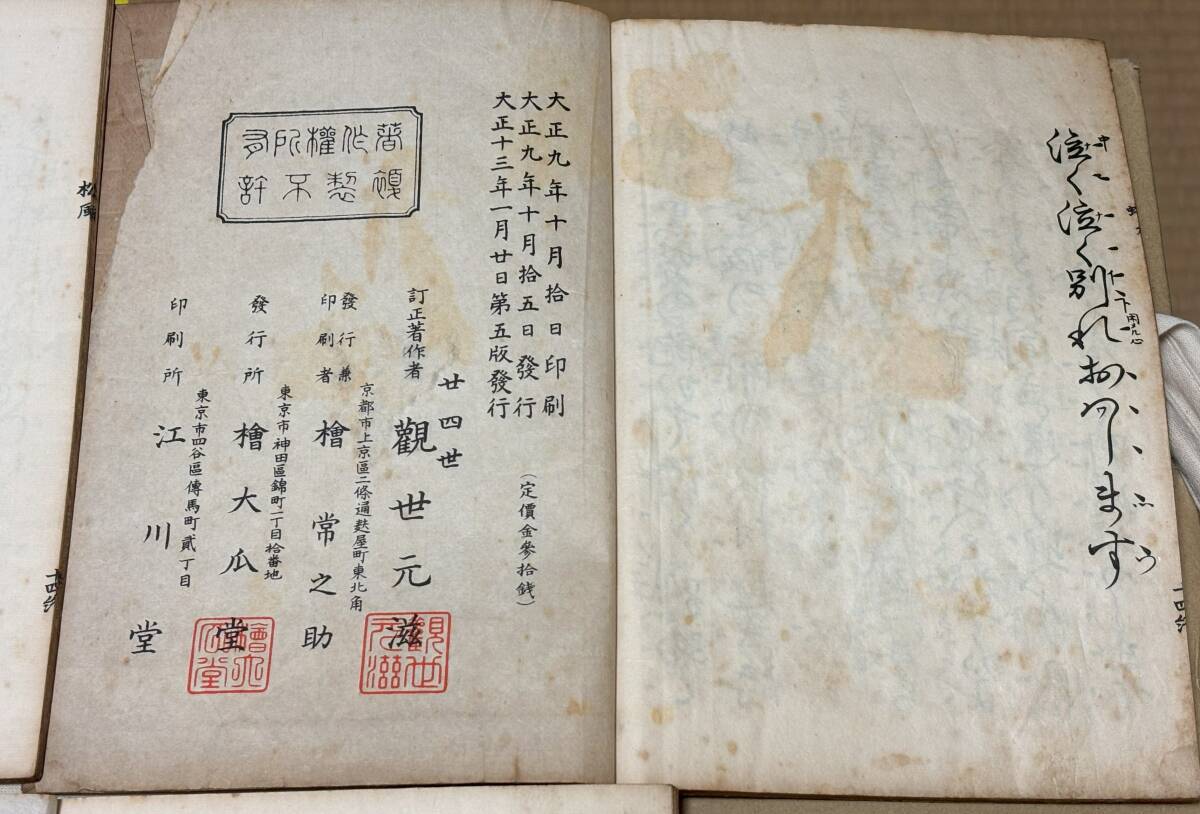 泣く泣く別れおはします
十四終
大正九年十月拾日印刷
大正九年十月拾五日發行
大正十三年一月廿日第五版發行
(定價金參拾錢)
著作權所有
不許複製
訂正著作者
廿四世
觀世元滋
京都市上京區二條通麩屋町東北角
發行兼
印刷者
檜常之助
東京市神田區錦町二丁目拾番地
發行所
檜大瓜堂
東京市四谷區傳馬町貳丁目
印刷所
江川堂
觀世元滋
檜大瓜堂
松風
十四終